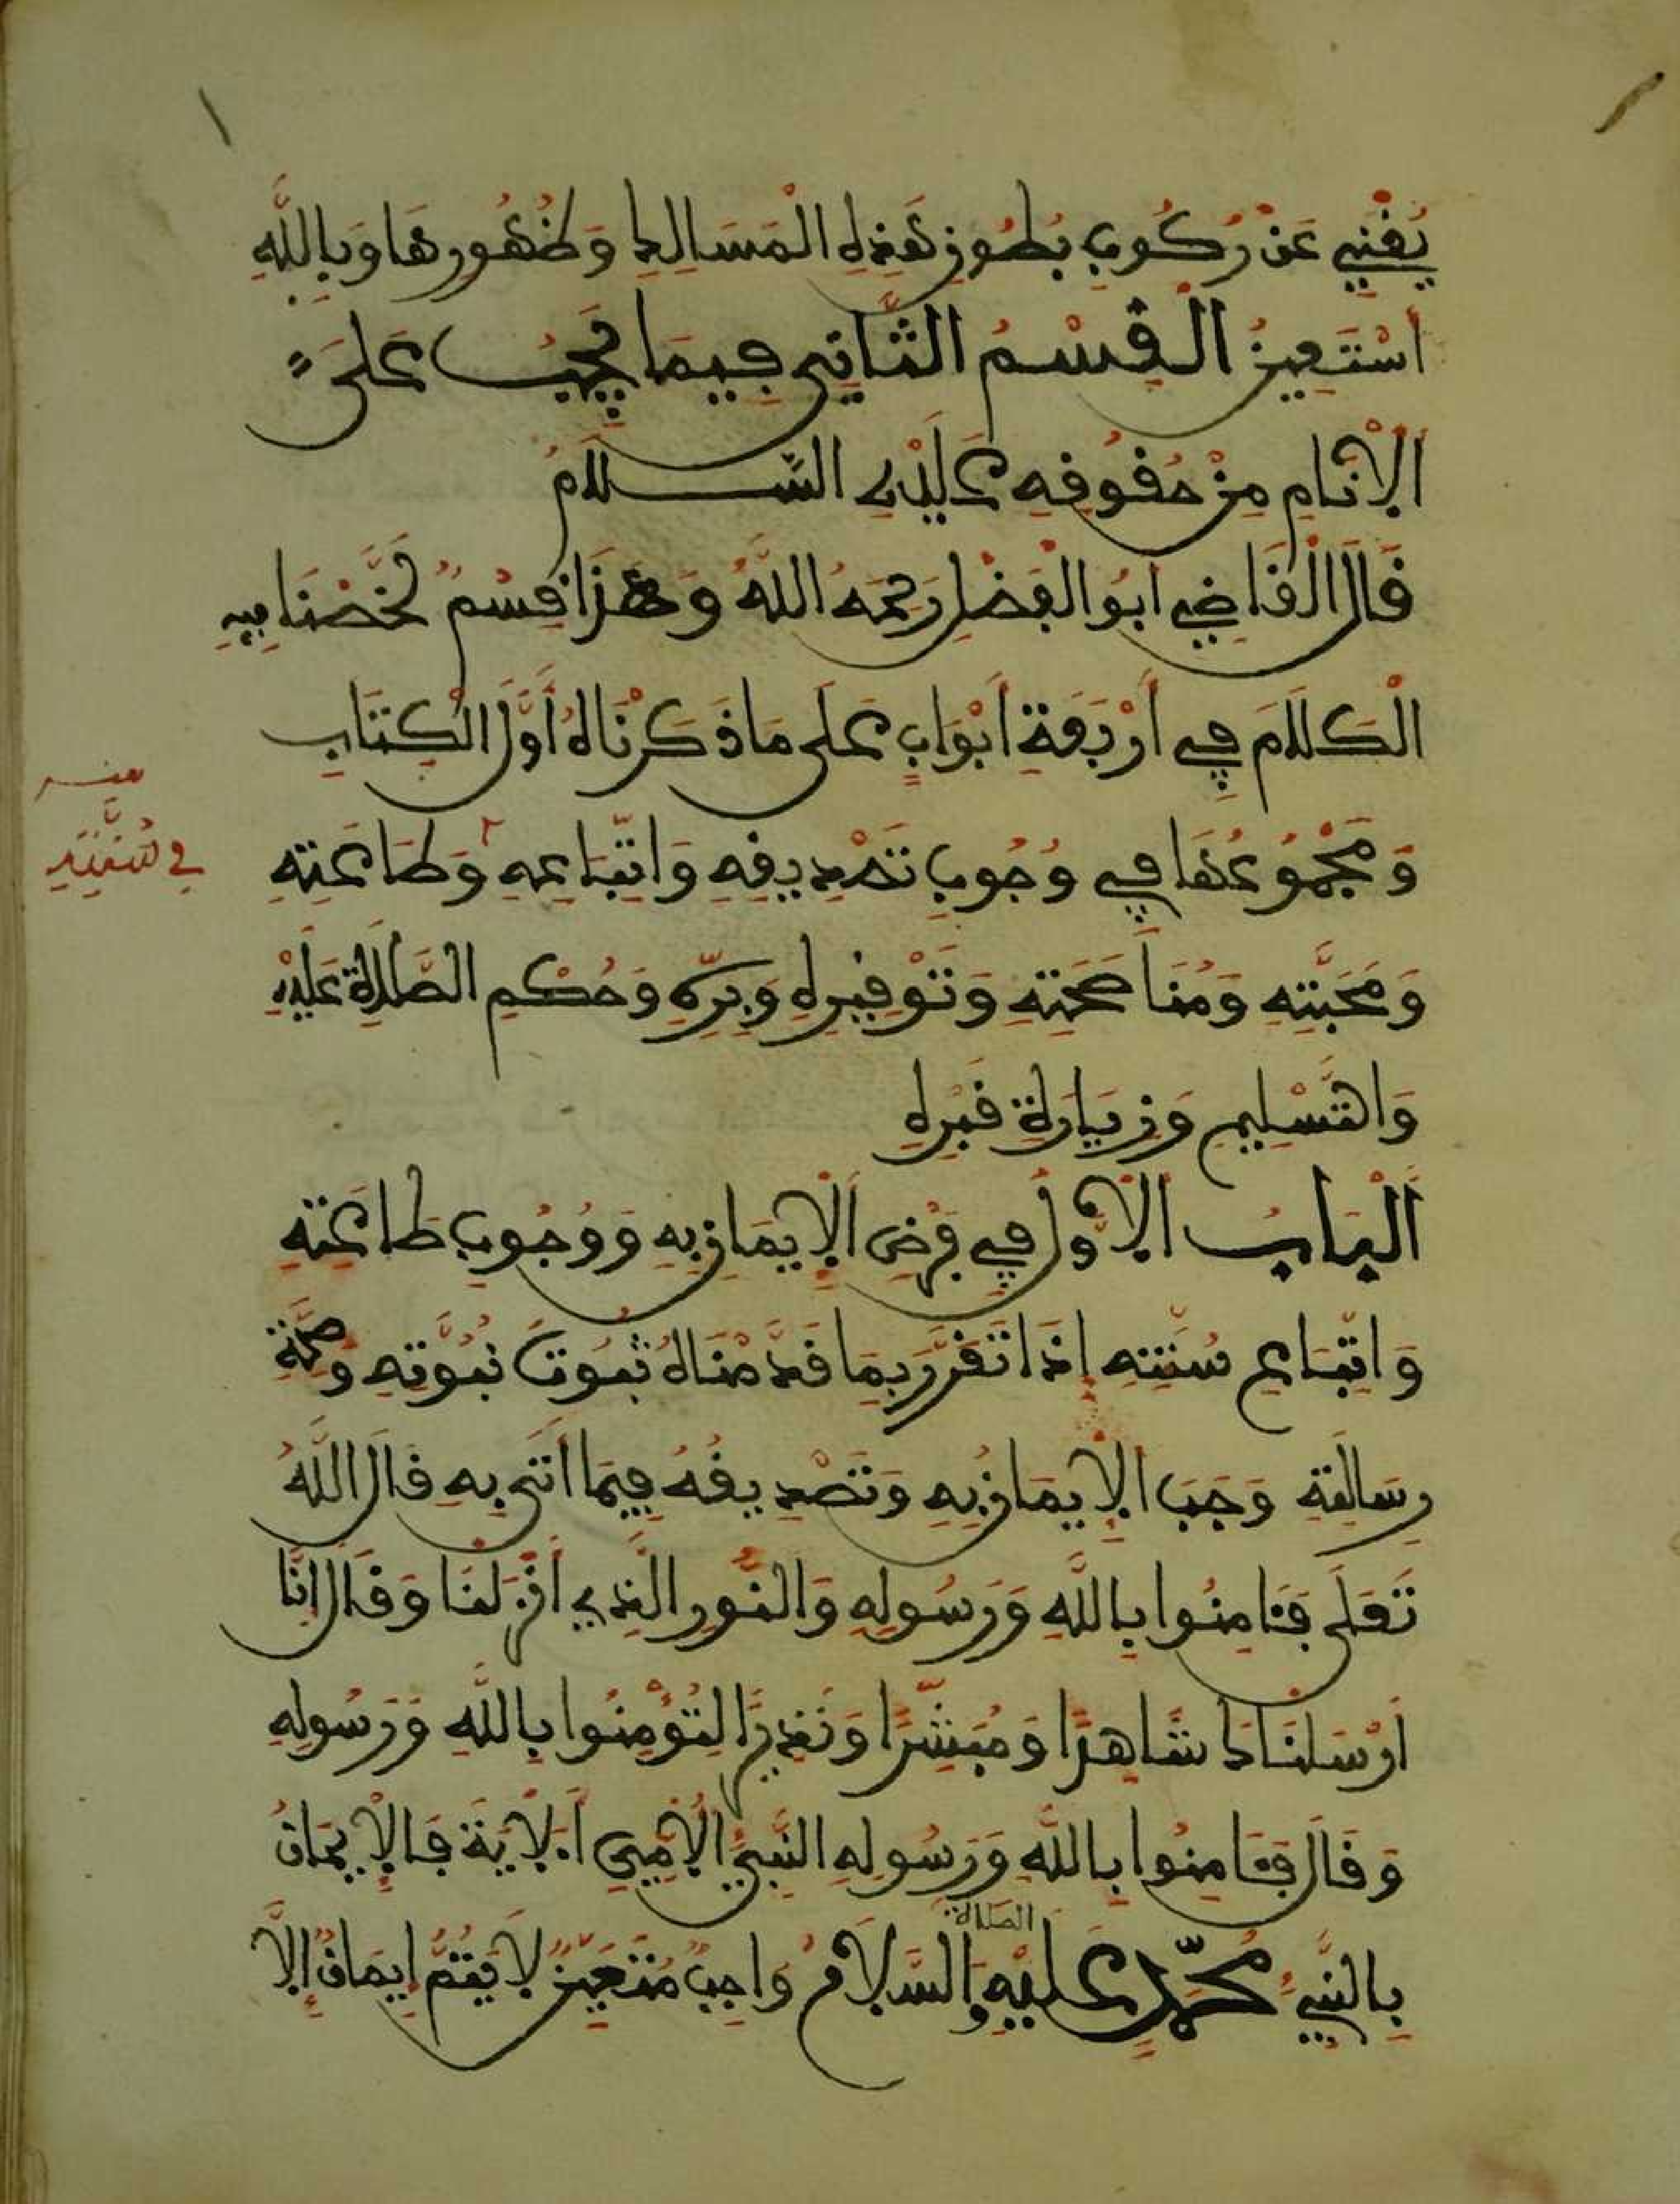 يُغْنِي عَنْ رُكُوبِ بُطُونِ هَذِهِ الْمَسَالِكِ وَظُهُورِهَا وَبِاللَّهِ
أَسْتَعِينُ الْقِسْمُ الثَّانِي فِيمَا يَجِبُ عَلَى
الْأَنَامِ مِنْ حُقُوقِهِ عَلَيْهِ السَّلَامُ
قَالَ الْقَاضِي أَبُو الْفَضْلِ رَحِمَهُ اللَّهُ وَهَذَا قِسْمٌ لَخَّصْنَا فِيهِ
الْكَلَامَ فِي أَرْبَعَةِ أَبْوَابٍ عَلَى مَا ذَكَرْنَاهُ أَوَّلَ الْكِتَابِ
وَمَجْمُوعُهَا فِي وُجُوبِ تَصْدِيقِهِ وَاتِّبَاعِهِ وَطَاعَتِهِ
فِي سُنَّتِهِ
وَمَحَبَّتِهِ وَمُنَاصَحَتِهِ وَتَوْقِيرِهِ وَبِرِّهِ وَحُكْمِ الصَّلَاةِ عَلَيْهِ
وَالتَّسْلِيمِ وَزِيَارَةِ قَبْرِهِ
الْبَابُ الْأَوَّلُ فِي فَرْضِ الْإِيمَانِ بِهِ وَوُجُوبِ طَاعَتِهِ
وَاتِّبَاعِ سُنَّتِهِ إِذَا تَقَرَّرَ بِمَا قَدَّمْنَاهُ ثُبُوتُ نُبُوَّتِهِ وَصِحَّةِ
رِسَالَتِهِ وَجَبَ الْإِيمَانُ بِهِ وَتَصْدِيقُهُ فِيمَا أَتَى بِهِ قَالَ اللَّهُ
تَعَلَى فَـَٔامِنُوا بِاللَّهِ وَرَسُولِهِ وَالنُّورِ الَّذِي أَنْزَلْنَا وَقَالَ إِنَّا
أَرْسَلْنَاكَ شَاهِدًا وَمُبَشِّرًا وَنَذِيرًا لِتُؤْمِنُوا بِاللَّهِ وَرَسُولِهِ
وَقَالَ فَـَٔامِنُوا بِاللَّهِ وَرَسُولِهِ النَّبِيِّ الْأُمِّيِّ الْآيَةَ فَالْإِيمَانُ
بِالنَّبِيِّ مُحَمَّدٍ عَلَيْهِ الصلاة وَالسَّلَامُ وَاجِبٌ مُتَعَيِّنٌ لَا يَتِمُّ إِيمَانٌ إِلَّا